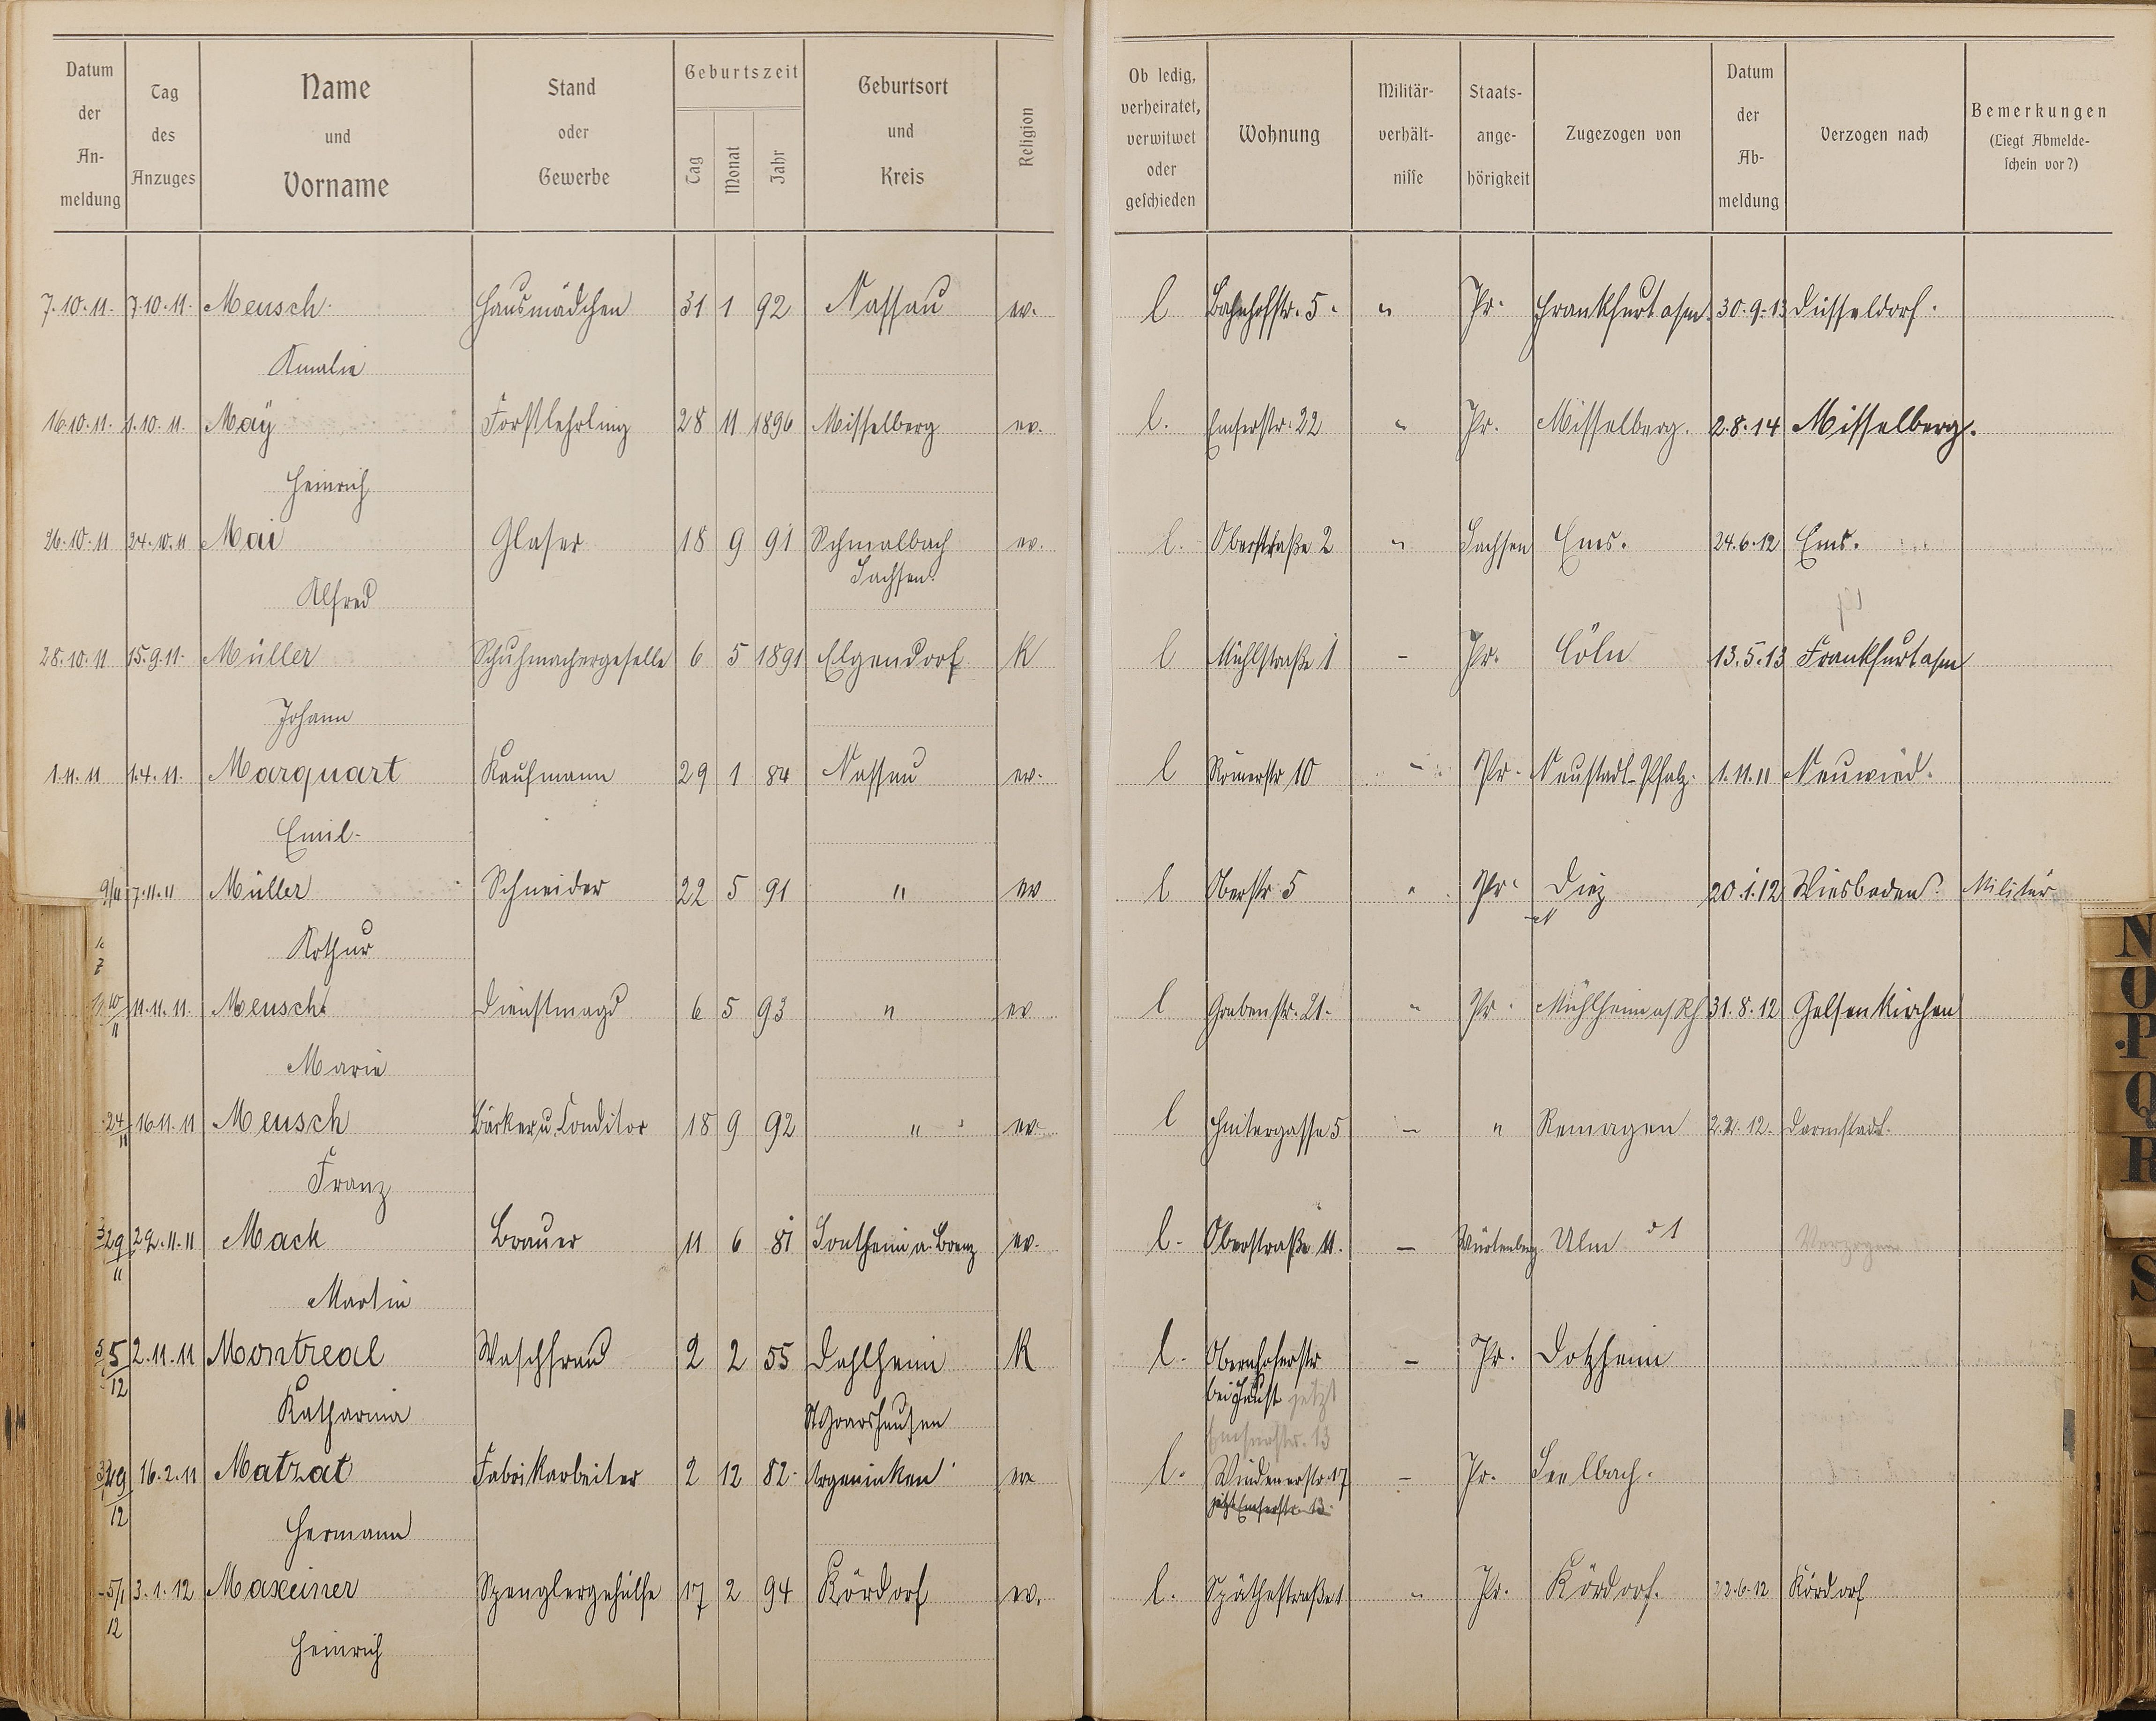 Datum der Anmeldung | Tag des Anzuges | Name und Vorname | Stand oder Gewerbe | Geburtszeit Tag Monat Jahr | Geburtsort und Kreis | Religion | Ob ledig, verheiratet, verwitwet oder geschieden | Wohnung | Militärverhältnisse | Staatsangehörigkeit | Zugezogen von | Datum der Abmeldung | Verzogen nach | Bemerkungen (Liegt Abmeldeschein vor?)
7.10.11. 7.10.11. Meusch Hausmädchen 31 1 92 Nassau ev. l Bahnhofstr. 5. " Pr. Frankfurt a/m. 30.9.13 Düsseldorf.
Amalie
16.10.11. 1.10.11. Maÿ Forstlehrling 28 11 1896 Misselberg ev. l. Emserstr. 22 " Pr. Misselberg. 2.8.14 Misselberg.
Heinrich
26.10.11 24.10.11 Mai Glaser 18 9 91 Schmalbach ev. l. Oberstraße 2 " Sachsen Ems. 24.6.12 Ems.
Sachsen.
Alfred
28.10.11 15.9.11. Müller Schuhmachergeselle 6 5 1891 Elgendorf K l Mühlstraße 1 – Pr. Cöln 13.5.13 Frankfurt a/m
Johann
1.11.11 1.4.11. Marquart Kaufmann 29 1 84 Nassau ev. l Römerstr 10 " Pr. Neustadt-Pfalz. 1.11.11 Neuwied.
Emil.
9/11 7.11.11 Müller Schneider 22 5 91 " ev l Oberstr 5 " Pr. Diez 20.1.12 Wiesbaden. Militär
Arthur
10/11 11.11.11. Meusch Dienstmagd 6 5 93 " ev l Grabenstr. 21. " Pr. Mühlheim a/Rh 31.8.12 Gelsenkirchen
Marie
24/11 16.11.11 Meusch Bäcker u. Conditor 18 9 92 " ev. l Hintergasse 5 – " Remagen 2.2.12. Darmstadt.
Franz
29/11 29.11.11 Mack Brauer 11 6 81 Sontheim a. Brenz ev. l. Oberstraße 11. – Würtenberg Ulm a/ Verzogen
Martin
5/12 2.11.11 Montreal Waschfrau 2 2 55 Dahlheim K l. Obernhoferstr – Pr. Dotzheim
bei Faust jetzt
Katharina St. Goarshausen
Emserstr. 13
29/12 16.2.11 Matzat Fabrikarbeiter 2 12 82. Argeninken ev l. Windenerstr. 17 – Pr. Seelbach.
jetzt Emserstr. 13
Hermann
5/1 12 3.1.12 Maxeiner Spenglergehülfe 17 2 94 Kördorf ev. l. Späthestraße 1 " Pr. Kördorf. 22.6.12 Kördorf
Heinrich
N
O
P
Q
R
S